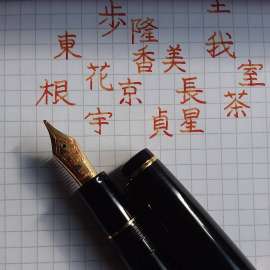 歩
隆
主
我
東
香
美
花
室
根
京
長
茶
宇
貞
星